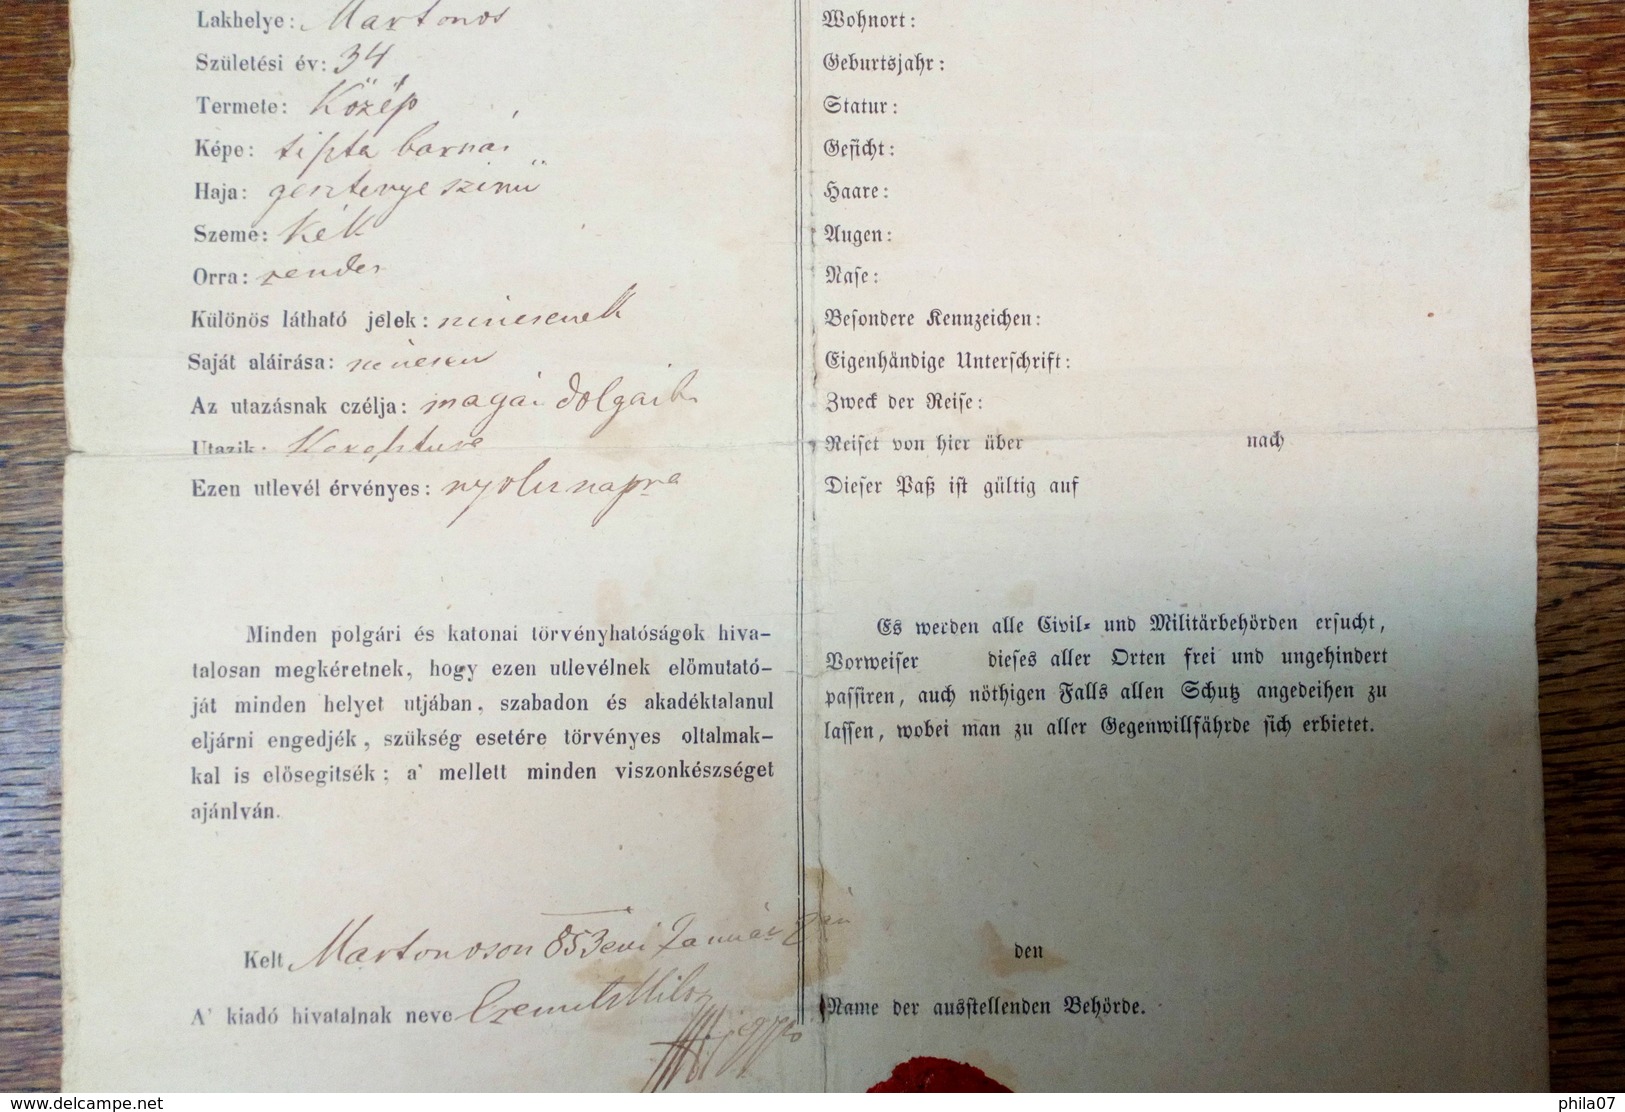 Lakhelye: Martonos
Születési év: 34
Termete: Közép
Képe: tiszta barna
Haja: gesztenye szinü
Szeme: Kék
Orra: rendes
Különös látható jelek: nincsenek
Saját aláirása: nincsen
Az utazásnak czélja: magái dolgait
Utazik:
Ezen utlevél érvényes: nyolcz napra
Minden polgári és katonai törvényhatóságok hiva-
talosan megkéretnek, hogy ezen utlevélnek előmutató-
ját minden helyet utjában, szabadon és akadéktalanul
eljárni engedjék, szükség esetére törvényes oltalmak-
kal is elősegitsék; a' mellett minden viszonkészséget
ajánlván.
Kelt Martonoson 853 evi Január
A' kiadó hivatalnak neve
Wohnort:
Geburtsjahr:
Statur:
Gesicht:
Haare:
Augen:
Nase:
Besondere Kennzeichen:
Eigenhändige Unterschrift:
Zweck der Reise:
Reiset von hier über nach
Dieser Paß ist gültig auf
Es werden alle Civil- und Militärbehörden ersucht,
Vorweiser dieses aller Orten frei und ungehindert
passiren, auch nöthigen Falls allen Schutz angedeihen zu
lassen, wobei man zu aller Gegenwillfährde sich erbietet.
den
Name der ausstellenden Behörde.
www.delcampe.net
phila07